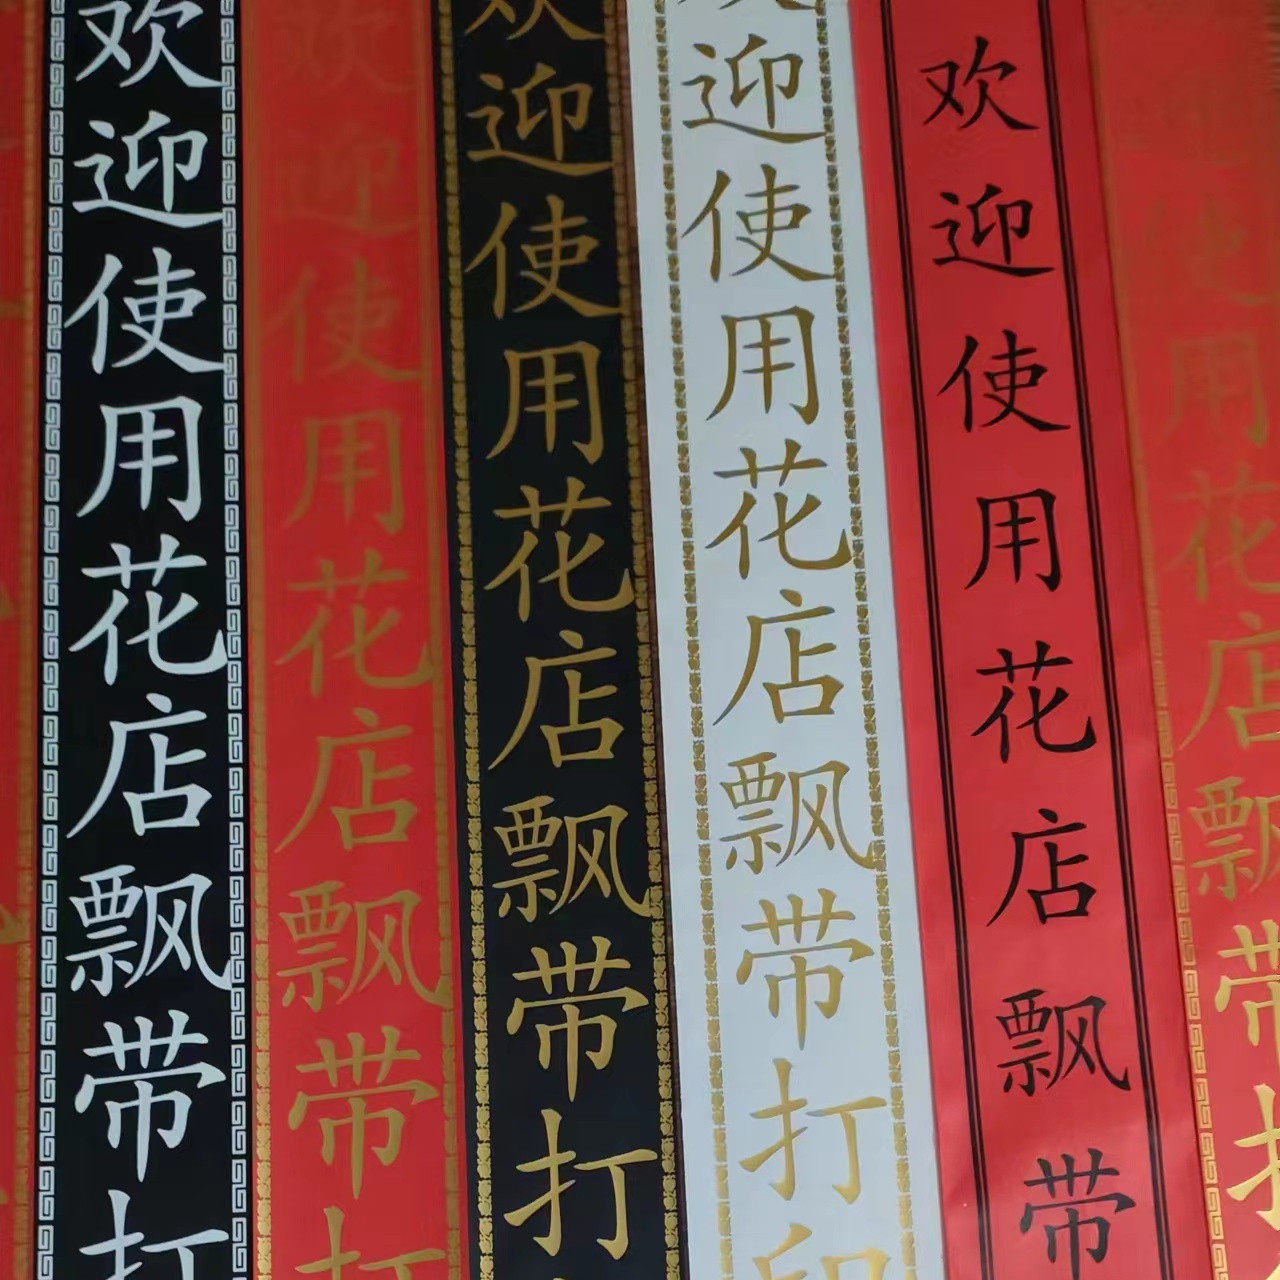 欢迎使用花店飘带打
欢迎使用花店飘带打
欢迎使用花店飘带打
迎使用花店飘带打印
欢迎使用花店飘带
使用花店飘带打